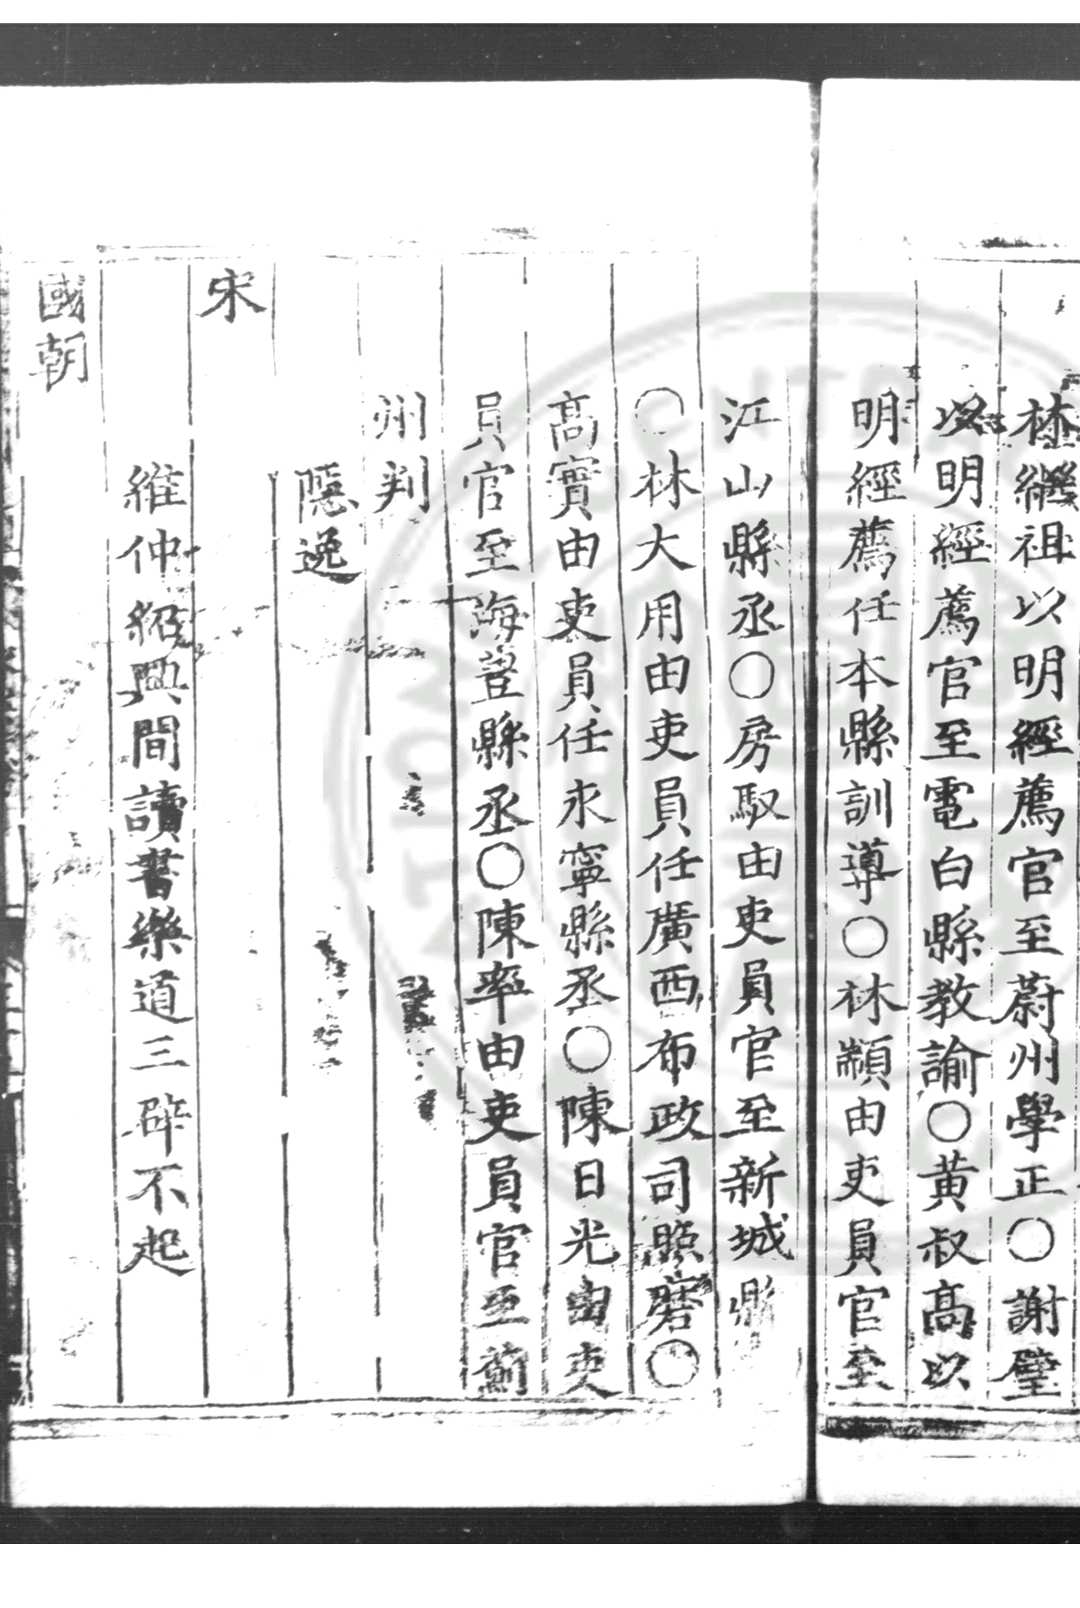 林繼祖以明經薦官至蔚州學正○謝璧
以明經薦官至電白縣教諭○黃叔高以
明經薦任本縣訓導○林顓由吏員官至
江山縣丞○房馭由吏員官至新城縣
○林大用由吏員任廣西布政司照磨○
高實由吏員任永寧縣丞○陳日光由吏
員官至海豐縣丞○陳率由吏員官至薊
州判
隱逸
宋
維仲紹興間讀書樂道三辟不起
國朝